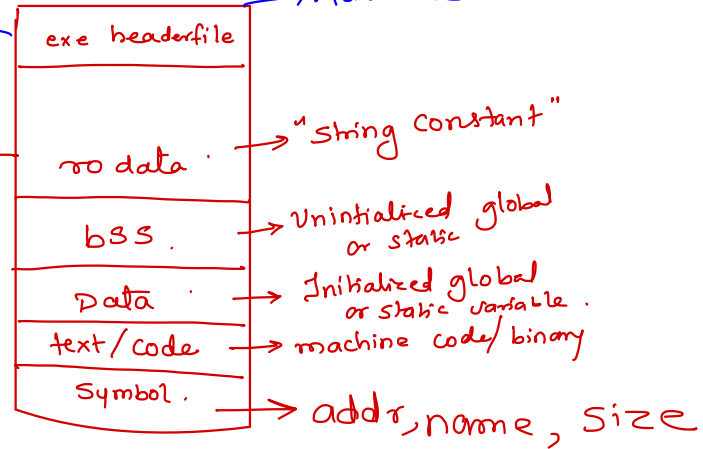 exe headerfile
ro data.
"String Constant"
bss.
Uninitialized global
or static
Data
Initialized global
or static variable.
text/code
machine code/binary
Symbol.
addr, name, size